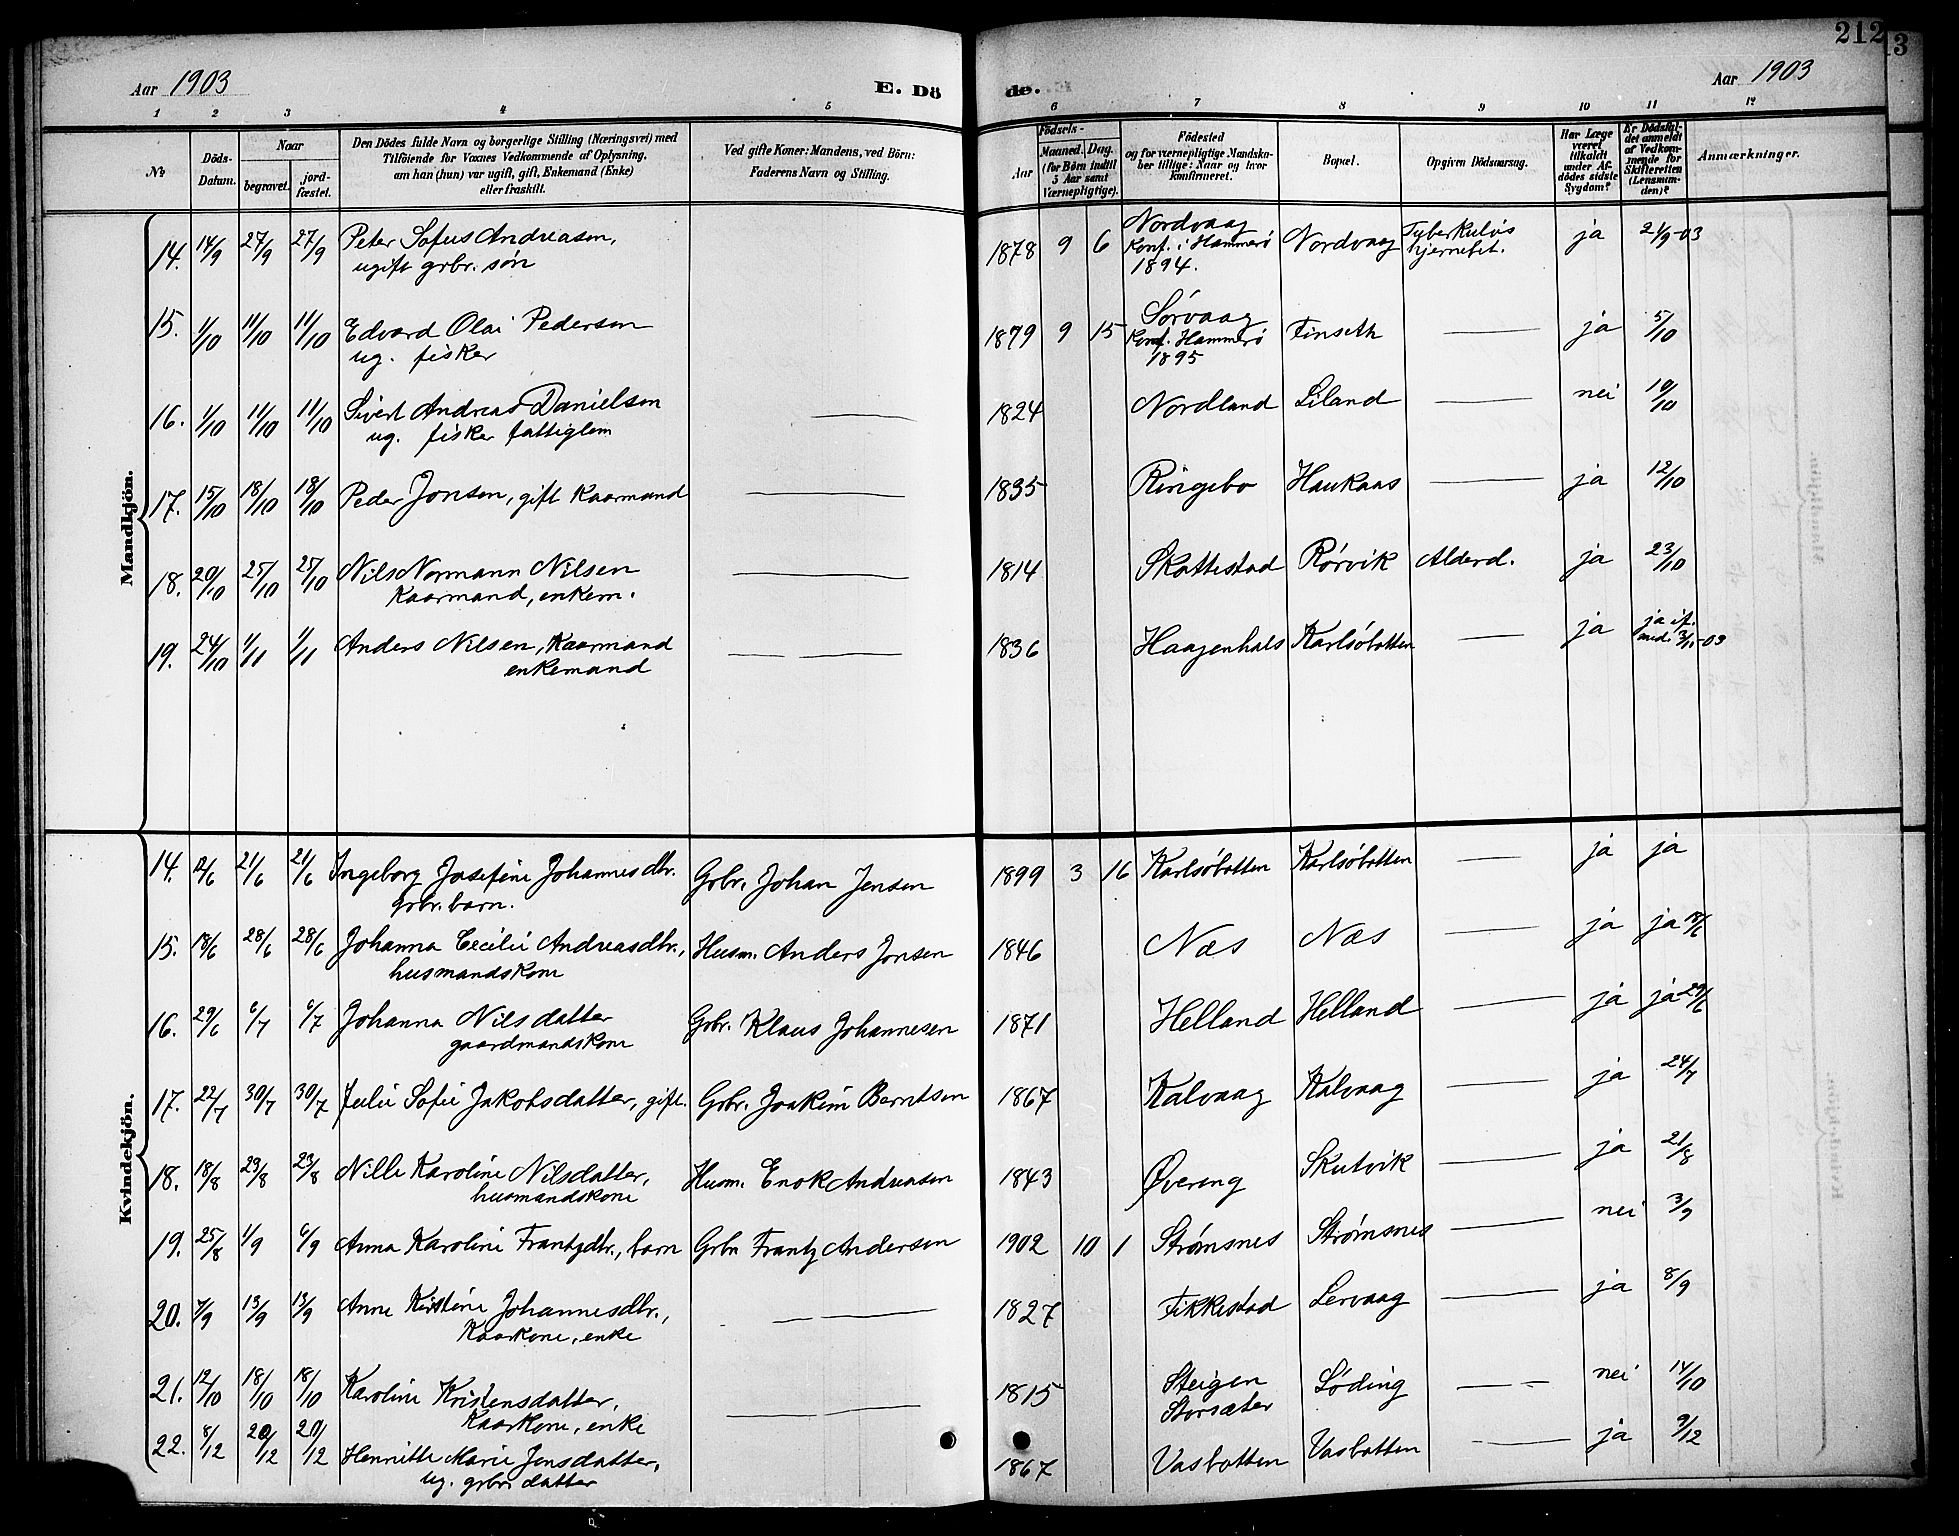 212
3
Aar 1903
E. Dö
de.
Aar 1903
1 2 3 4 5
6 7 8 9 10 11 12
No
Döds-Datum.
Naar
begravet.
jord-fæstet.
Den Dödes fulde Navn og borgerlige Stilling (Næringsvei) med
Tilföiende for Voxnes Vedkommende af Oplysning,
om han (hun) var ugift, gift, Enkemand (Enke)
eller fraskilt.
Ved gifte Koner: Mandens, ved Börn:
Faderens Navn og Stilling.
Födsels-
Aar
Maaned. Dag.
(for Börn indtil
5 Aar samt
Værnepligtige).
Födested
og for værnepligtige Mandska-
ber tillige: Naar og hvor
konfirmeret.
Bopæl.
Opgiven Dödsaarsag.
Har Læge
været
tilkaldt
under Af-
dödes sidste
Sygdom?
Er Dödsfal-
det anmeldt
af Vedkom-
mende for
Skifteretten
(Lensman-
den)?
Anmærkninger.
Mandkjön.
14. 14/9 27/9 27/9 Peter Sofus Andreasen, 1878 9 6 Nordvaag Nordvaag Tyberkuløs ja 21/9-03
ugift grbr. søn Konf. i Hammerø hjernebet.
1894.
15. 1/10 11/10 11/10 Edvard Olai Pedersen 1879 9 15 Sørvaag Finseth — ja 5/10
ug. fisker Konf. Hammerø
1895
16. 1/10 11/10 11/10 Sivert Andreas Danielsen — 1824 Nordland Liland — nei 10/10
ug. fisker fattiglem
17. 15/10 18/10 18/10 Peder Jonsen, gift Kaarmand — 1835 Ringebo Haukaas — ja 12/10
18. 20/10 25/10 25/10 Nils Normann Nilsen — 1814 Skottestad Rørvik Alderd. ja 23/10
Kaarmand, enkem.
19. 24/10 1/11 1/11 Anders Nilsen, Kaarmand — — 1836 Haagenhals Karlsøbotten — ja ja if.
enkemand med. 3/11-03
Kvindekjön.
14. 12/6 21/6 21/6 Ingeborg Josefine Johannesdtr. Grbr. Johan Jensen 1899 3 16 Karlsøbotten Karlsøbotten — ja ja
grbr. barn.
15. 18/6 28/6 28/6 Johanna Cecilie Andreasdtr., Husm. Anders Jonsen 1846 Næs Næs — ja ja 18/6
husmandskone
16. 29/6 6/7 6/7 Johanna Nilsdatter Grbr. Klaus Johannesen 1871 Helland Helland — ja ja 29/6
gaardmandskone
17. 22/7 30/7 30/7 Julie Sofie Jakobsdatter, gift. Grbr. Joakim Berntsen 1867 Kalvaag Kalvaag — ja 24/7
18. 18/8 23/8 23/8 Nille Karoline Nilsdatter, Husm. Enok Andreasen 1843 Øvereng Skutvik — ja 21/8
husmandskone
19. 25/8 1/9 6/9 Anna Karoline Frantzdtr., barn Grbr. Frantz Andersen 1902 10 1 Strømsnes Strømsnes — nei 3/9
20. 7/9 13/9 13/9 Anne Kirstine Johannesdtr., — — 1827 Fikkestad Lervaag — ja 8/9
Kaarkone, enke
21. 12/10 18/10 18/10 Karoline Kristensdatter, — 1815 Steigen Løding — — nei 14/10
Kaarkone, enke Storsæter
22. 8/12 20/12 20/12 Henriette Marie Jensdatter, 1867 Vasbotten Vasbotten — ja 9/12
ug. grbr. datter